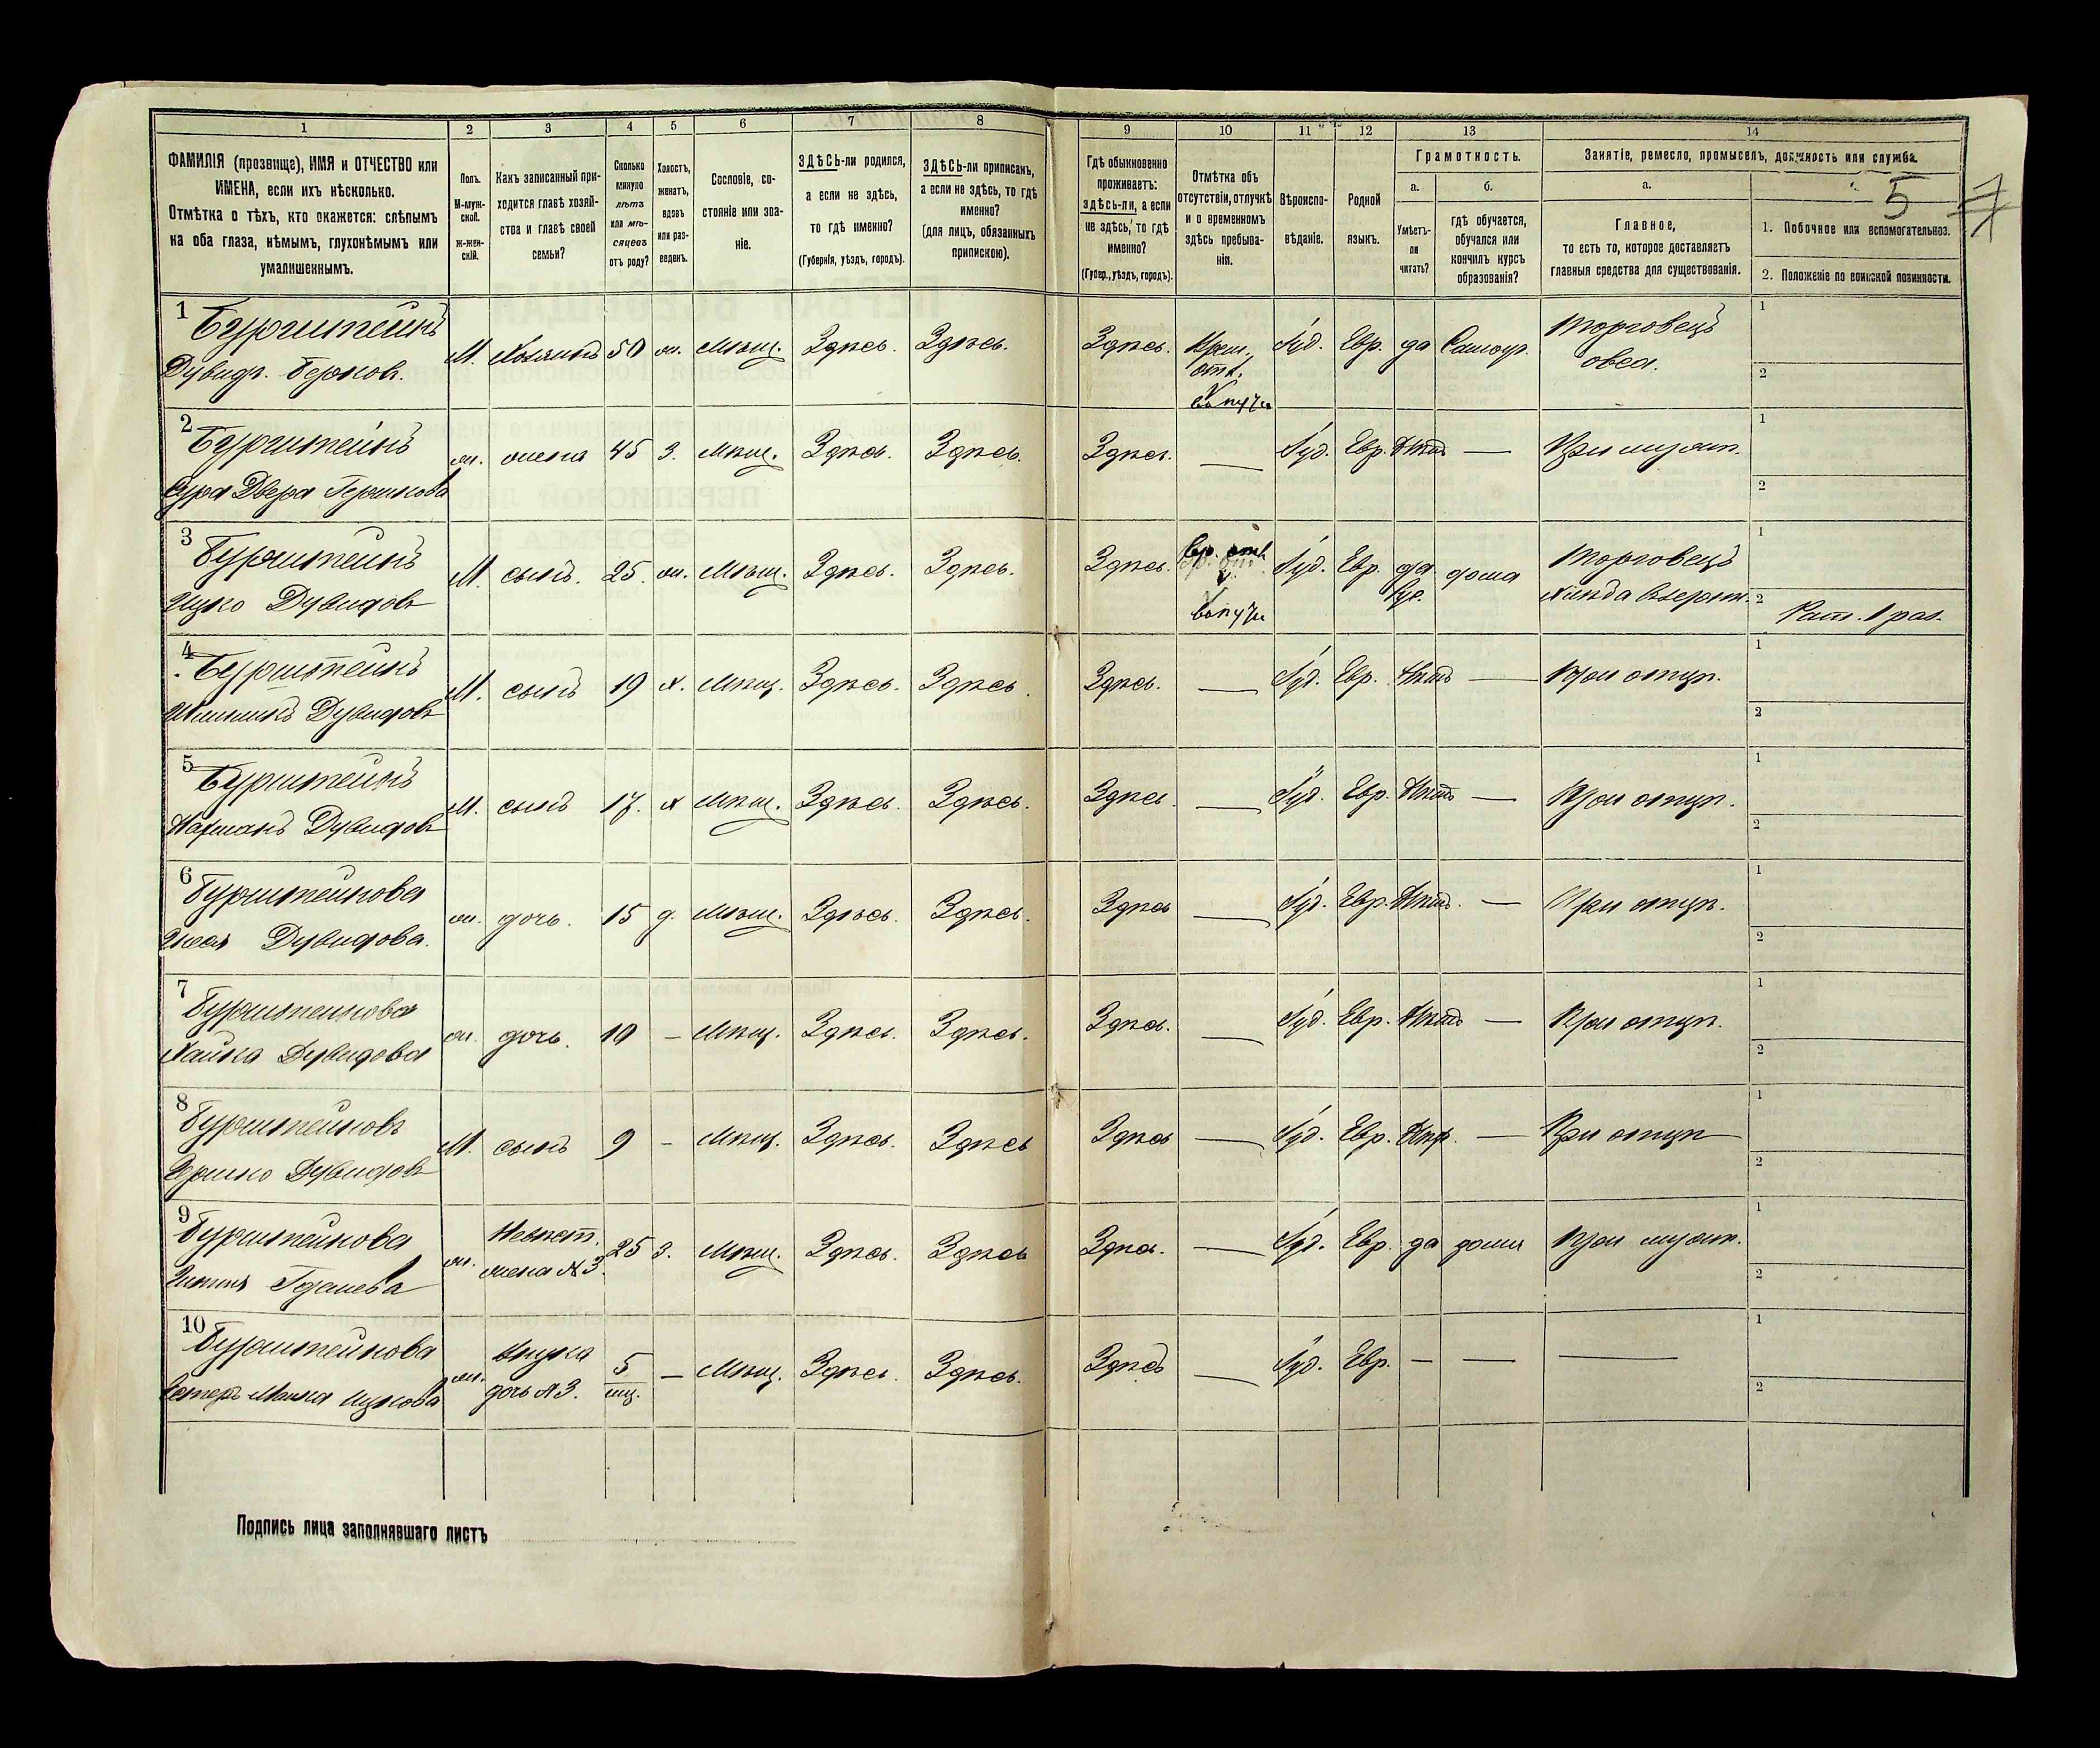 1 2 3 4 5 6 7 8 9 10 11 12 13 14
ФАМИЛІЯ (прозвище), ИМЯ и ОТЧЕСТВО или
ИМЕНА, если ихъ нѣсколько.
Отмѣтка о тѣхъ, кто окажется: слѣпымъ
на оба глаза, нѣмымъ, глухонѣмымъ или
умалишеннымъ.
Полъ.
М-муж-
ской.
ж-жен-
скій.
Какъ записанный при-
ходится главѣ хозяй-
ства и главѣ своей
семьи?
Сколько
минуло
лѣтъ
или мѣ-
сяцевъ
отъ роду?
Холостъ,
женатъ,
вдовъ
или раз-
веденъ.
Сословіе, со-
стояніе или зва-
ніе.
ЗДѢСЬ-ли родился,
а если не здѣсь,
то гдѣ именно?
(Губернія, уѣздъ, городъ).
ЗДѢСЬ-ли приписанъ,
а если не здѣсь, то гдѣ
именно?
(для лицъ, обязанныхъ
припискою).
Гдѣ обыкновенно
проживаетъ:
здѣсь-ли, а если
не здѣсь, то гдѣ
именно?
(Губер., уѣздъ, городъ).
Отмѣтка объ
отсутствіи, отлучкѣ
и о временномъ
здѣсь пребыва-
ніи.
Вѣроиспо-
вѣданіе.
Родной
языкъ.
Грамотность.
а.
Умѣетъ-
ли
читать?
б.
гдѣ обучается,
обучался или
кончилъ курсъ
образованія?
Занятіе, ремесло, промыселъ, должность или служба.
а.
Главное,
то есть то, которое доставляетъ
главныя средства для существованія.
5
1. Побочное или вспомогательное.
2. Положеніе по воинской повинности.
1 Бурштейнъ
Дувидъ Берков. М. Хозяинъ 50 ж. Мѣщ. Здѣсь. Здѣсь. Здѣсь. Врем. отл. Іуд. Евр. да Самоуч. Торговецъ овса. 1 2
2 Бурштейнъ
Сура Двера Гершкова ж. жена 45 З. Мѣщ. Здѣсь. Здѣсь. Здѣсь. — Іуд. Евр. Нѣтъ — При муж. 1 2
3 Бурштейнъ
Ицко Дувидовъ М. сынъ. 25. ж. Мѣщ. Здѣсь. Здѣсь. Здѣсь. Вр. отл. Іуд. Евр. да дома Торговецъ 1 2 Рат. 1 раз.
4 Бурштейнъ
Дувидовъ М. сынъ 19 х. Мѣщ. Здѣсь. Здѣсь. Здѣсь. — Іуд. Евр. Нѣтъ — При отцѣ. 1 2
5 Бурштейнъ
Нахманъ Дувидовъ М. сынъ 17. х Мѣщ. Здѣсь. Здѣсь. Здѣсь — Іуд. Евр. Нѣтъ — При отцѣ. 1 2
6 Бурштейнова
Дувидова. ж. дочь. 15 д. Мѣщ. Здѣсь. Здѣсь. Здѣсь — Іуд. Евр. Нѣтъ. — При отцѣ. 1 2
7 Бурштейнова
Хайка Дувидова ж. дочь. 10 — Мѣщ. Здѣсь. Здѣсь. Здѣсь. — Іуд. Евр. Нѣтъ — При отцѣ. 1 2
8 Бурштейновъ
Гершко Дувидовъ М. сынъ 9 — Мѣщ. Здѣсь. Здѣсь Здѣсь — Іуд. Евр. — При отцѣ 1 2
9 Бурштейнова
ж. Невѣст. жена №3. 25 З. Мѣщ. Здѣсь. Здѣсь Здѣсь. — Іуд. Евр. да дома При муж. 1 2
10 Бурштейнова
Ицкова ж. внука дочь №3. 5 мц. — Мѣщ. Здѣсь. Здѣсь. Здѣсь — Іуд. Евр. — — — 1 2
Подпись лица заполнявшаго листъ